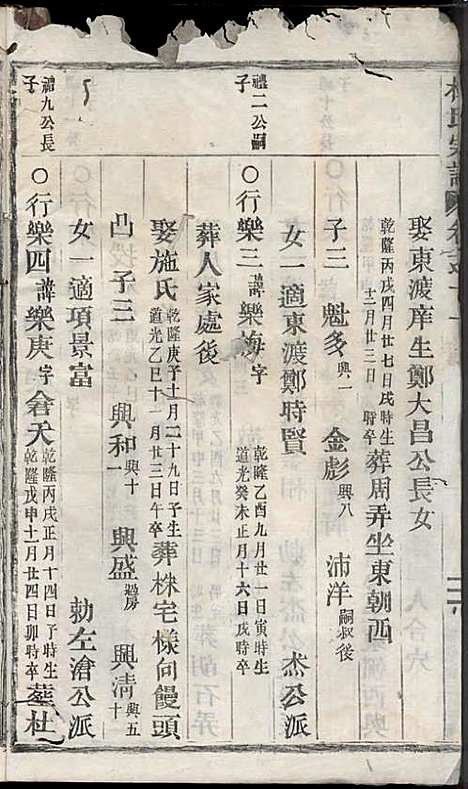 娶東渡庠生鄭大昌公長女
乾隆丙戌四月廿七日戌時生
十二月廿三日　時卒
葬周弄坐東朝西
子三　魁多興二　金彪興八　沛洋嗣叔後
女一適東渡鄭時賢　杰公派
禮二公嗣子
○行樂三諱樂海字
乾隆乙酉九月廿一日寅時生
道光癸未正月十六日戌時卒
葬人家處後
娶施氏
乾隆庚子十一月二十九日子生
道光乙巳十一月廿三日午卒
葬株宅樣向饅頭凸
子三　興和興十一　興盛　興清興五十
女一適項景富　勅左滄公派
禮九公長子
○行樂四諱樂庚字會天
乾隆丙戌正月十四日子時生
乾隆戊申十一月廿四日卯時卒
葬社